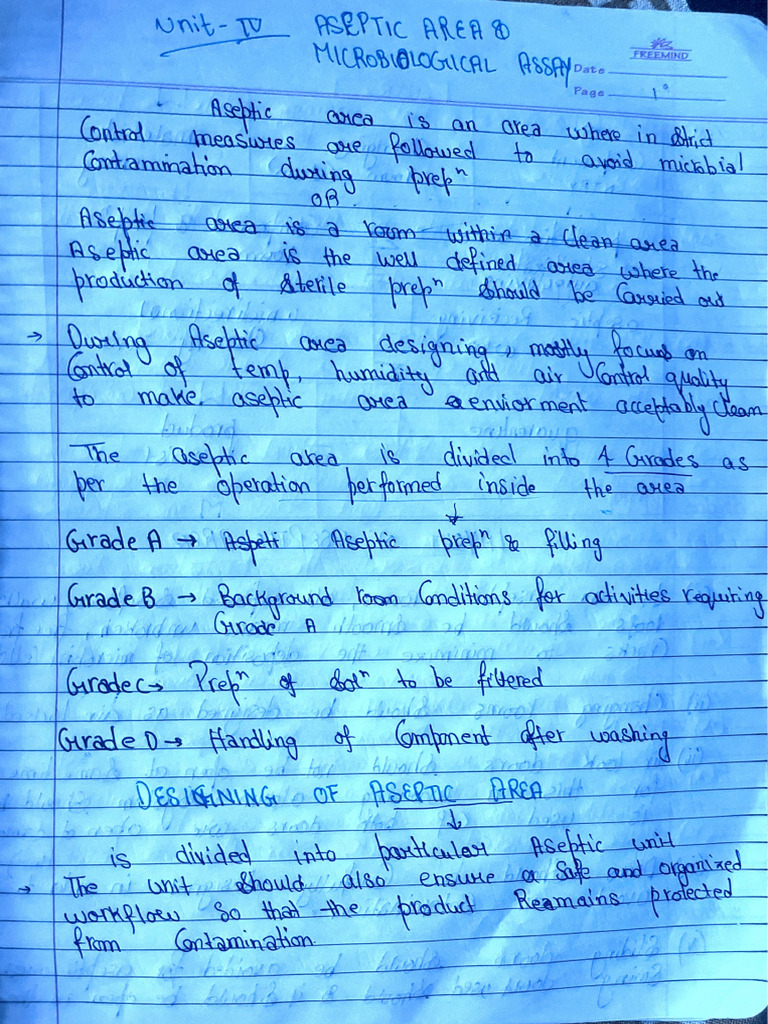 Unit-IV ASEPTIC AREA &
MICROBIOLOGICAL ASSAY
FREEMIND
Date
Page 1
Aseptic area is an area where in strict
Control measures are followed to avoid microbial
Contamination during prepⁿ
OR
Aseptic area is a room within a clean area
Aseptic area is the well defined area where the
production of sterile prepⁿ should be Carried out
→ During Aseptic area designing, mostly focus on
Control of temp, humidity and air Control quality
to make aseptic area enviorment acceptably Clean
The aseptic area is divided into 4 Grades as
per the operation performed inside the area
↓
Grade A → Aseptic prepⁿ & filling
Grade B → Background room Conditions for activities requiring
Grade A
Grade C → Prepⁿ of Solⁿ to be filtered
Grade D → Handling of Component after washing
DESIGNING OF ASEPTIC AREA
↓
is divided into particular Aseptic unit
→ The unit should also ensure a safe and organized
workflow so that the product Remains protected
from Contamination.